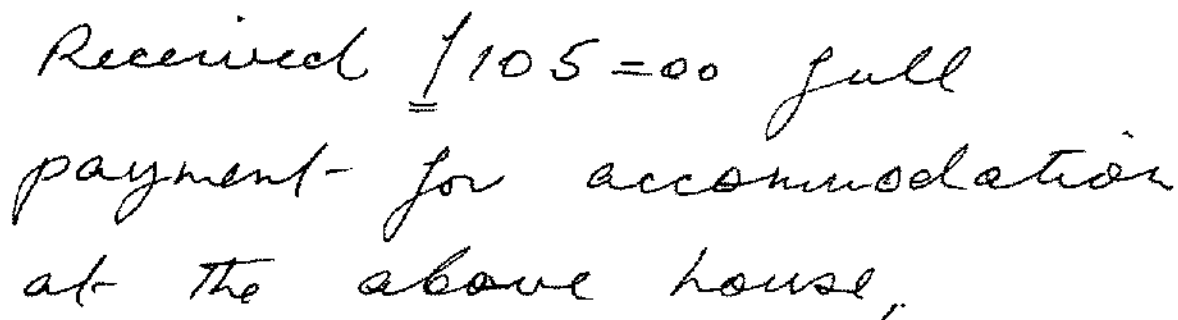 Received £105=00 full
payment for accommodation
at the above house,